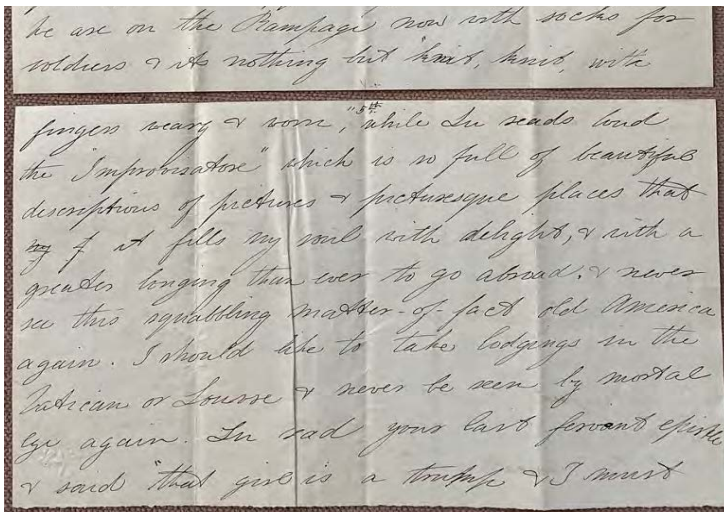 We are on the Rampage now with socks for
soldiers & its nothing but "knit, knit, with
"5th
fingers weary & worn," while Lu reads loud
the "Improvisatore" which is so full of beautiful
descriptions of pictures & picturesque places that
my f it fills my soul with delight, & with a
greater longing than ever to go abroad. & never
see this squabbling matter-of-fact old America
again. I should like to take lodgings in the
Vatican or Louvre & never be seen by mortal
eye again. Lu read your last fervent epistle
& said "that girl is a trump & I must